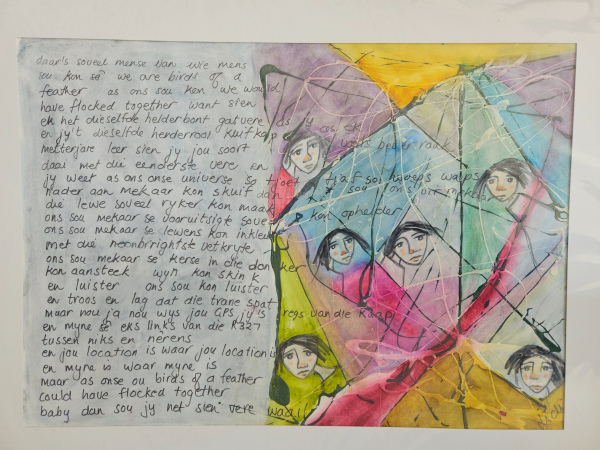 daar's soveel mense van wie mens
sou kon sê we are birds of a
feather as ons sou kon we would
have flocked together want sien
ek het dieselfde helderbont gatvere as jy
en jy't dieselfde henderrooi kuifkop as ek
metterjare leer sien jy jou soort
daai met die eenderste vere en
jy weet as ons onse universe se
nader aan mekaar kon skuif dan sou ons vir mekaar
die lewe soveel ryker kon maak
ons sou mekaar se vooruitsigte sovee kon ophelder
ons sou mekaar se lewens kon inkleu
met die neonbrightste vetkryte
ons sou mekaar se kerse in die donker
kon aansteek wyn kon skink
en luister ons sou kon luister
en troos en lag dat die trane spat
maar nou ja nou wys jou GPS jy is regs van die R327
en myne sê eks links van die R327
tussen niks en nerens
en jou location is waar jou location is
en myne is waar myne is
maar as onse ou birds of a feather
could have flocked together
baby dan sou jy net sien vere waai!